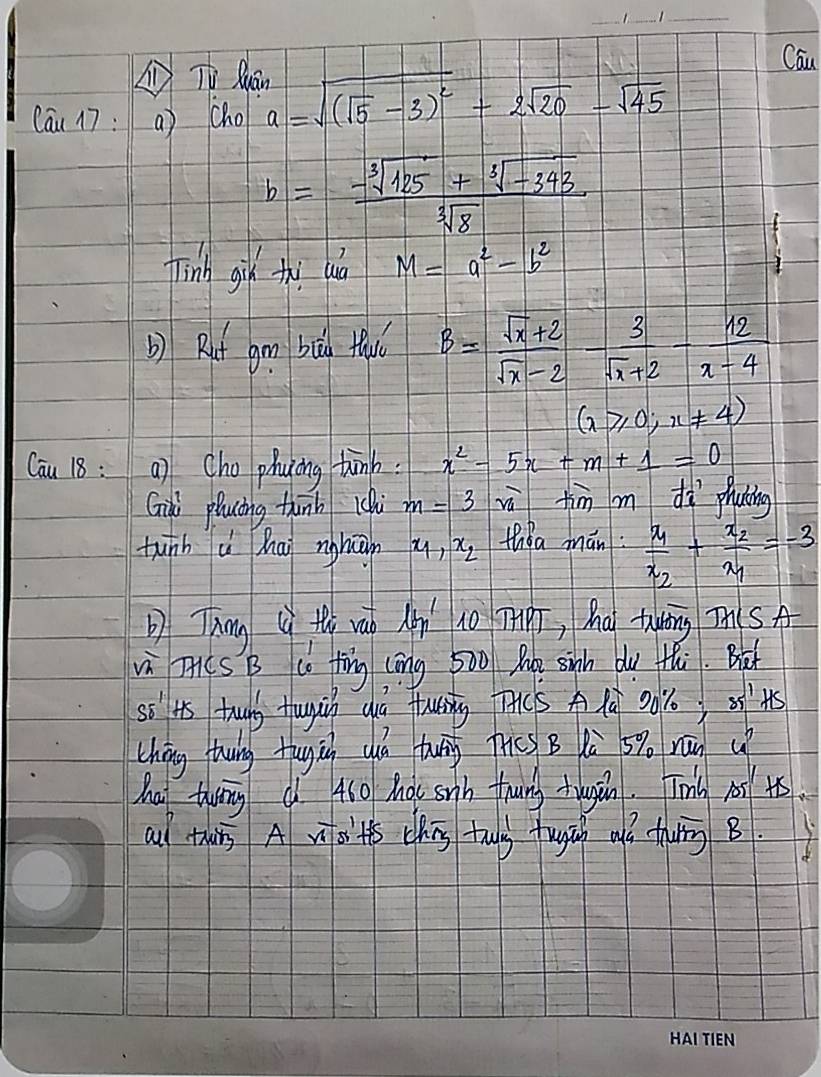 Câu
II Tự luận
Câu 17 : a) Cho a = √((√5 - 3)²) + 2√20 - √45
b = (-∛125 + ∛-343) / ∛8
Tính giá trị của M = a² - b²
b) Rút gọn biểu thức B = (√x + 2)/(√x - 2) - 3/(√x + 2) - 12/(x - 4)
(x ⩾ 0 ; x ≠ 4)
Câu 18 : a) Cho phương trình : x² - 5x + m + 1 = 0
Giải phương trình khi m = 3 và tìm m để phương
trình có hai nghiệm x₁, x₂ thỏa mãn : x₁/x₂ + x₂/x₁ = -3
b) Trong kì thi vào lớp 10 THPT, hai trường THCS A
và THCS B có tổng cộng 500 học sinh dự thi. Biết
số HS trúng tuyển của trường THCS A là 90% ; số HS
không trúng tuyển của trường THCS B là 5% nên cả
hai trường có 460 học sinh trúng tuyển. Tính số HS
của trường A và số HS không trúng tuyển của trường B.
HAI TIEN